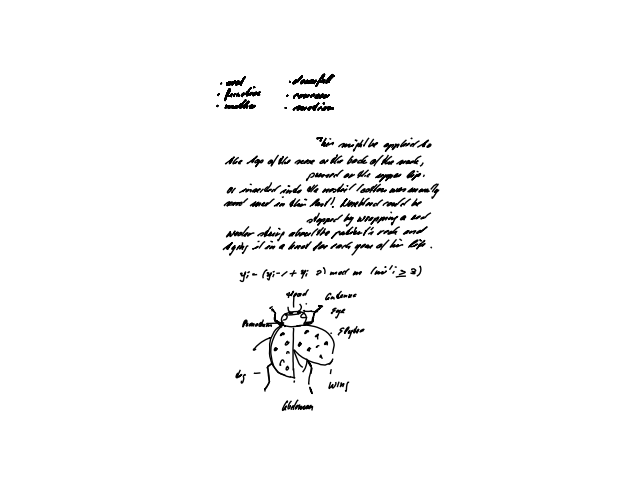 • and • downfall
• function
• mother • motion
This might be applied to
the top of the nose or the back of the neck,
poured on the upper lip.
or inserted into the nostril (cotton was usually
used in this). Nosebleed could be
stopped by wrapping a red
woolen string about the patient's neck and
tying it in a knot for each year of his life.
Head
Antenna
Eye
Pronotum
Elytra
Leg
Wing
Abdomen